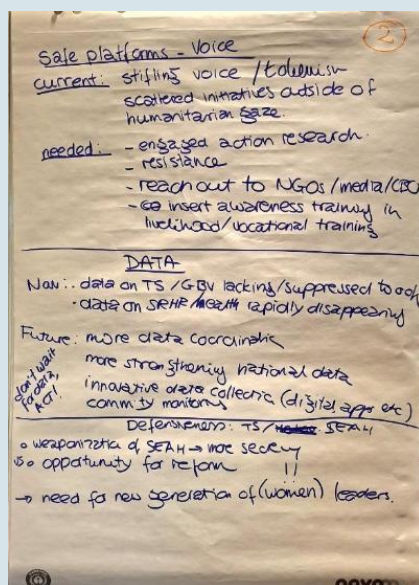 2
Safe platforms - Voice
current: stifling voice / tokenism
scattered initiatives outside of
humanitarian gaze.
needed: - engaged action research.
- resistance
- reach out to NGOs/media/CBO
- insert awareness training in
livelihood/vocational training
DATA
Now: - data on TS/GBV lacking/suppressed
- data on SRHR/health rapidly disappearing
Future: more data coordination
more strengthening national data
innovative data collection (digital apps etc)
community monitoring
don't wait
for data,
ACT!
Defensiveness: TS/ SEAH
o weaponization of SEAH → more secrecy
o opportunity for reform !!
→ need for new generation of (women) leaders.